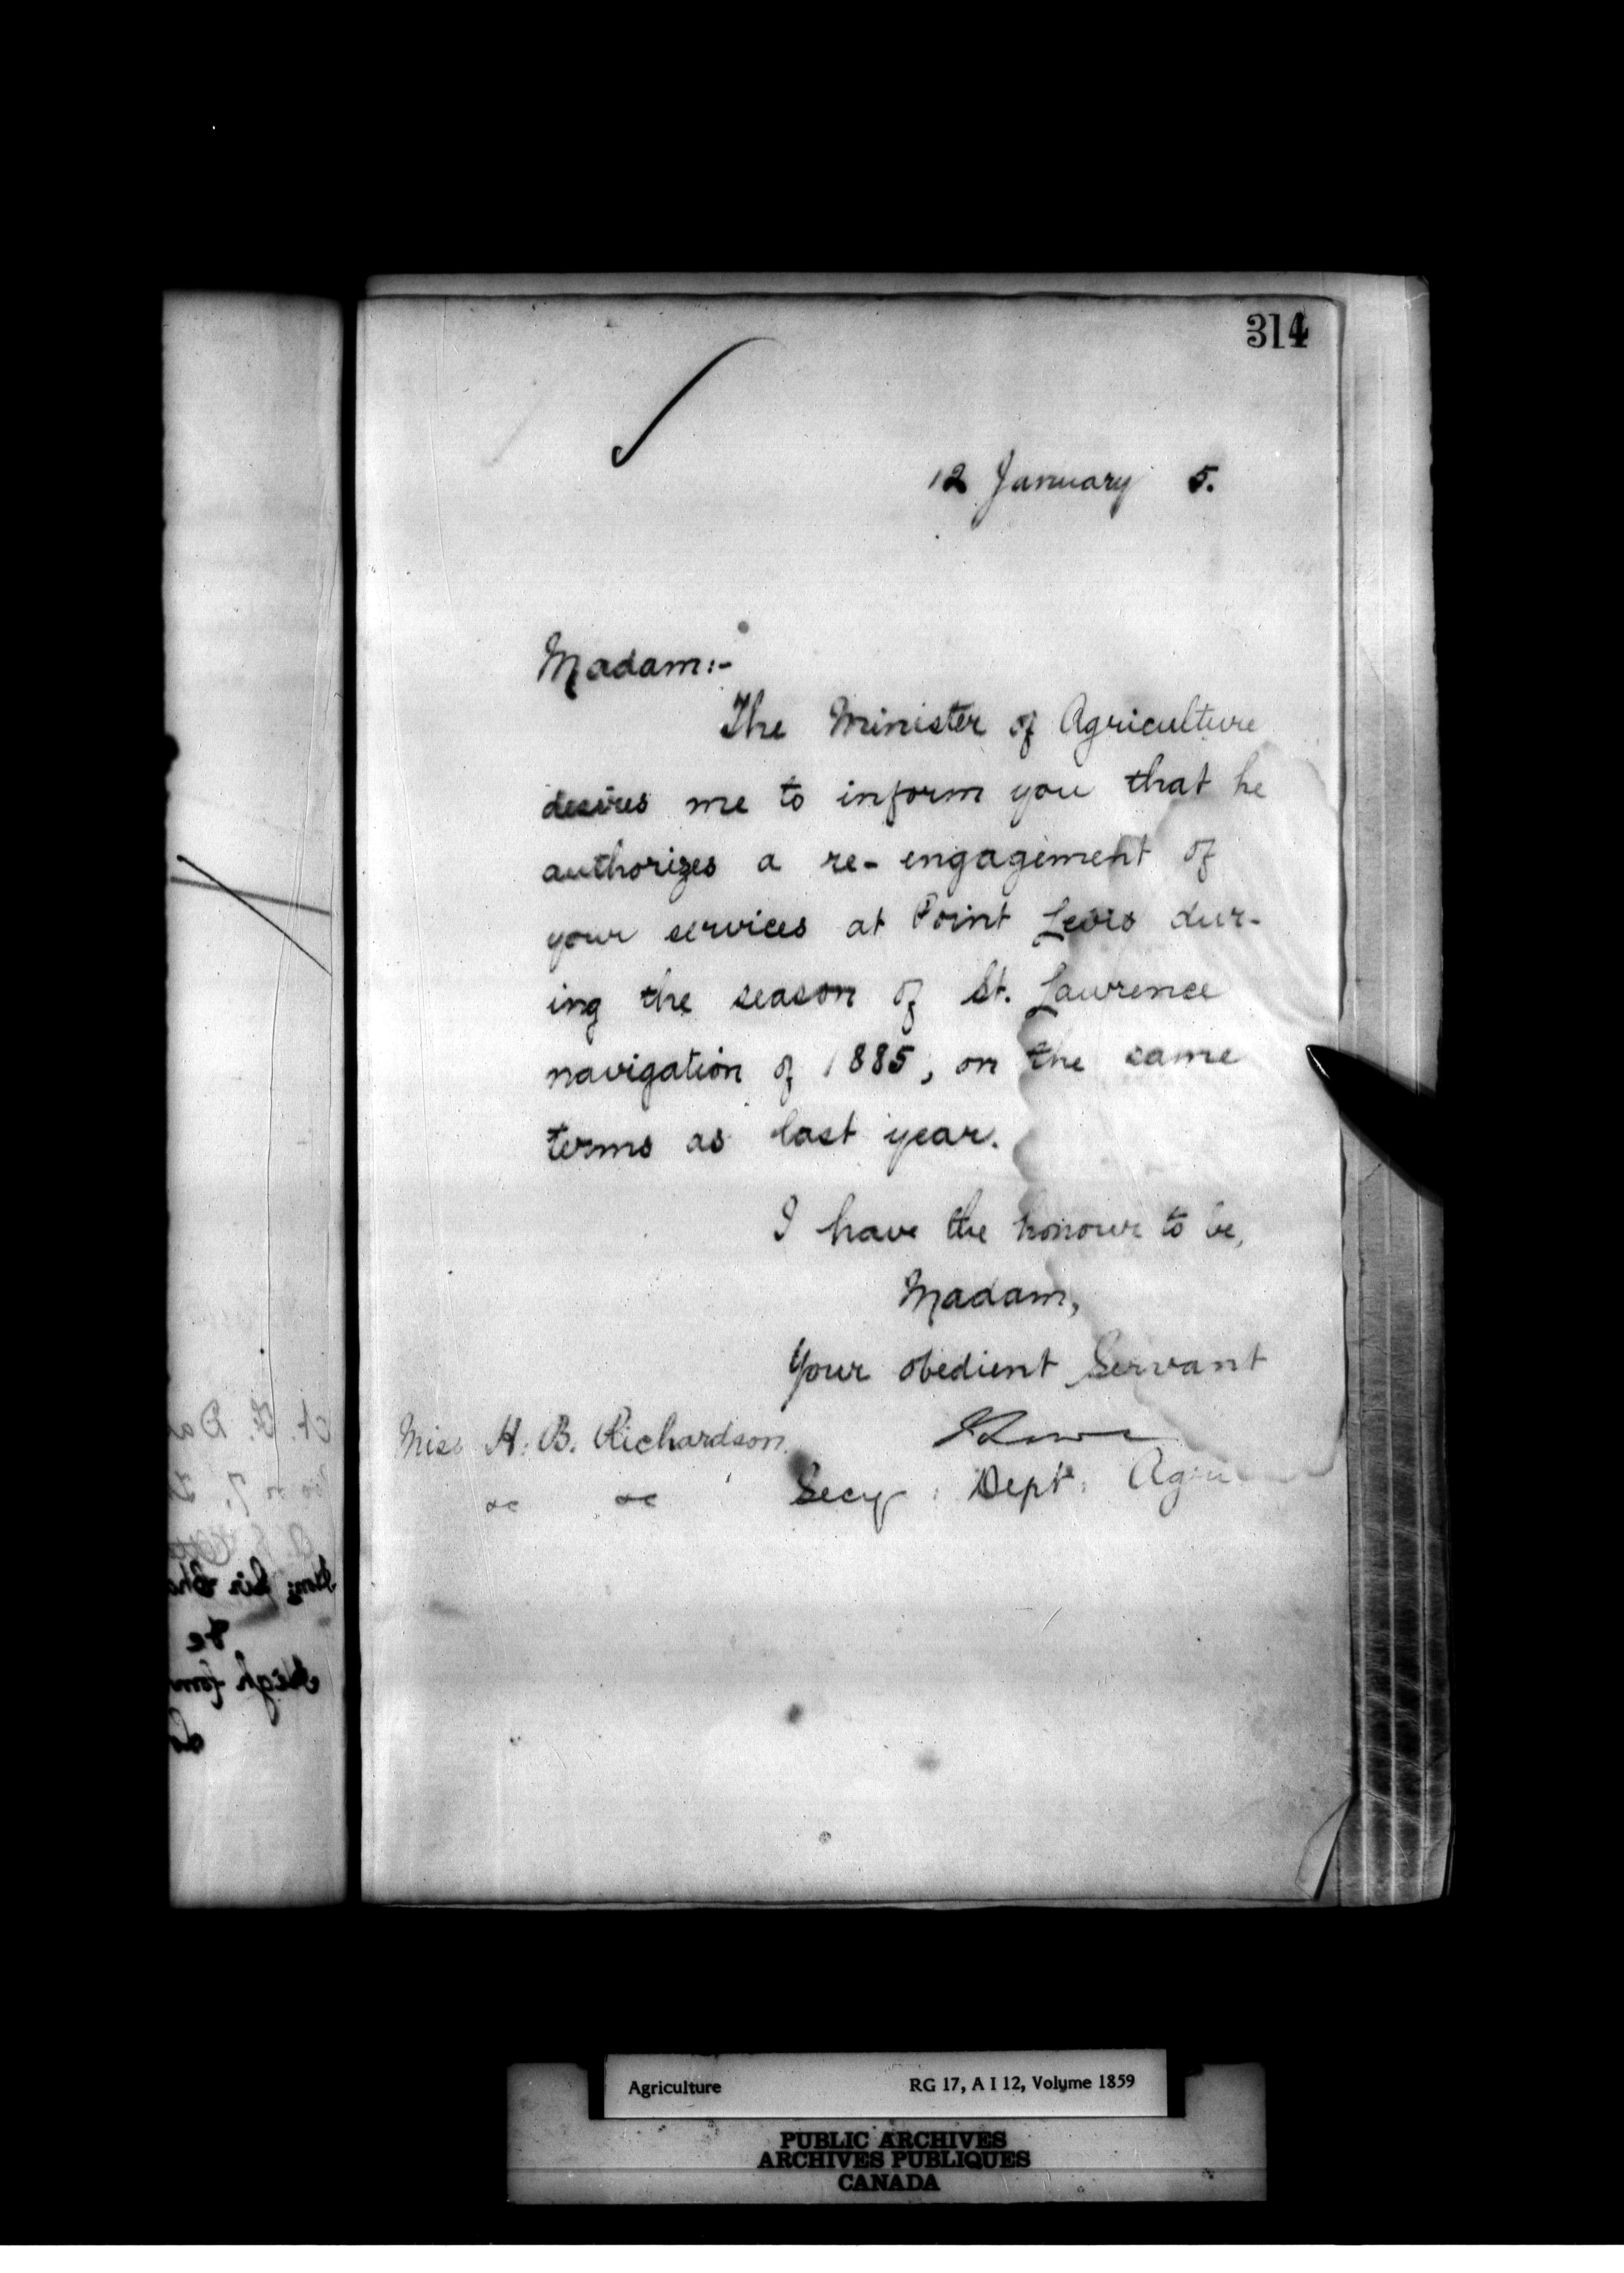 314
12 January 5.
Madam:-
The Minister of Agriculture
desires me to inform you that he
authorizes a re-engagement of
your services at Point Levis dur-
ing the season of St. Lawrence
navigation of 1885, on the same
terms as last year.
I have the honour to be,
Madam,
Your obedient Servant
Miss H. B. Richardson
&c &c Secy: Dept: Agri
Agriculture RG 17, A I 12, Volume 1859
PUBLIC ARCHIVES
ARCHIVES PUBLIQUES
CANADA